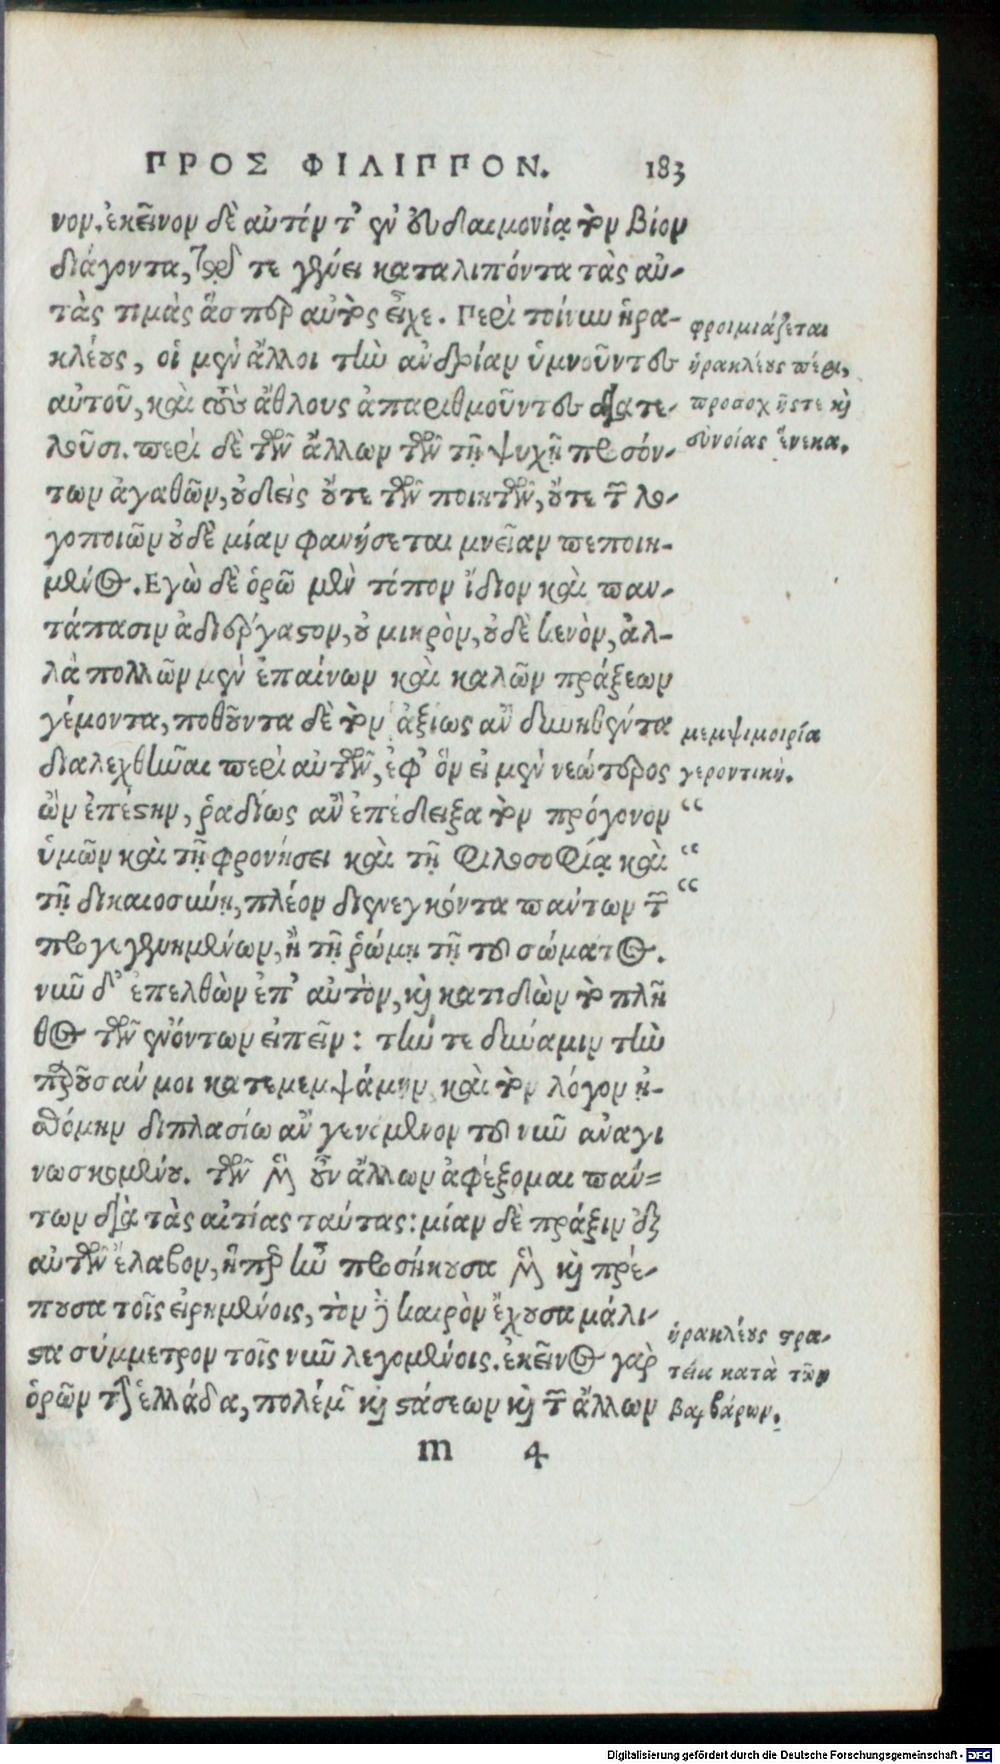 ΠΡΟΣ ΦΙΛΙΠΠΟΝ. 183
νον. ἐκεῖνον δὲ αὐτόν τ' ἐν εὐδαιμονίᾳ τὸν βίον
διάγοντα, τε γένει καταλιπόντα τὰς αὐ-
τὰς τιμὰς ἅσπερ αὐτὸς εἶχε. Περὶ τοίνυν ἡρα-
κλέους, οἱ μὲν ἄλλοι τὴν ἀνδρίαν ὑμνοῦντες
αὐτοῦ, καὶ τοὺς ἄθλους ἀπαριθμοῦντες διατε-
λοῦσι. περὶ δὲ τῶν ἄλλων τῶν τῇ ψυχῇ προσόν-
των ἀγαθῶν, οὐδεὶς οὔτε τῶν ποιητῶν, οὔτε τῶν λο-
γοποιῶν οὐδὲ μίαν φανήσεται μνείαν πεποιη-
μένος. Εγὼ δὲ ὁρῶ μὲν τόπον ἴδιον καὶ παν-
τάπασιν ἀδιεργαστον, οὐ μικρὸν, οὐδὲ κενὸν, ἀλ-
λὰ πολλῶν μὲν ἐπαίνων καὶ καλῶν πράξεων
γέμοντα, ποθοῦντα δὲ τὸν ἀξίως ἂν δυνηθέντα
διαλεχθῆναι περὶ αὐτῶν, ἐφ' ὃν εἰ μὲν νεώτερος
ὢν ἐπέστην, ῥᾳδίως ἂν ἐπέδειξα τὸν πρόγονον
ὑμῶν καὶ τῇ φρονήσει καὶ τῇ φιλοσοφίᾳ καὶ
τῇ δικαιοσύνῃ, πλέον διενεγκόντα πάντων τῶν
προγεγενημένων, ἢ τῇ ῥώμῃ τῇ τοῦ σώματος.
νῦν δ' ἐπελθὼν ἐπ' αὐτὸν, καὶ κατιδὼν τὸ πλῆ
θος τῶν ἐνόντων εἰπεῖν: τήν τε δύναμιν τὴν
παροῦσάν μοι κατεμεμψάμην, καὶ τὸν λόγον ᾐ-
σθόμην διπλασίω ἂν γενόμενον τοῦ νῦν ἀναγι
νωσκομένου. τῶν μὲν οὖν ἄλλων ἀφέξομαι πάν-
των διὰ τὰς αἰτίας ταύτας: μίαν δὲ πρᾶξιν ἐξ
αὐτῶν ἔλαβον, ἥπερ ἦν προσήκουσα μὲν καὶ πρέ-
πουσα τοῖς εἰρημένοις, τὸν δὲ καιρὸν ἔχουσα μάλι-
στα σύμμετρον τοῖς νῦν λεγομένοις. ἐκεῖνος γὰρ
ὁρῶν τὴν ἑλλάδα, πολέμων καὶ στάσεων καὶ τῶν ἄλλων
m 4
φροιμιάζεται
ἡρακλέους πέρι,
προσοχῆς τε καὶ
συνοίας ἕνεκα.
μεμψιμοιρία
γεροντική.
“
“
“
ἡρακλέους στρα-
τεία κατὰ τῶν
βαρβάρων.
Digitalisierung gefördert durch die Deutsche Forschungsgemeinschaft - DFG